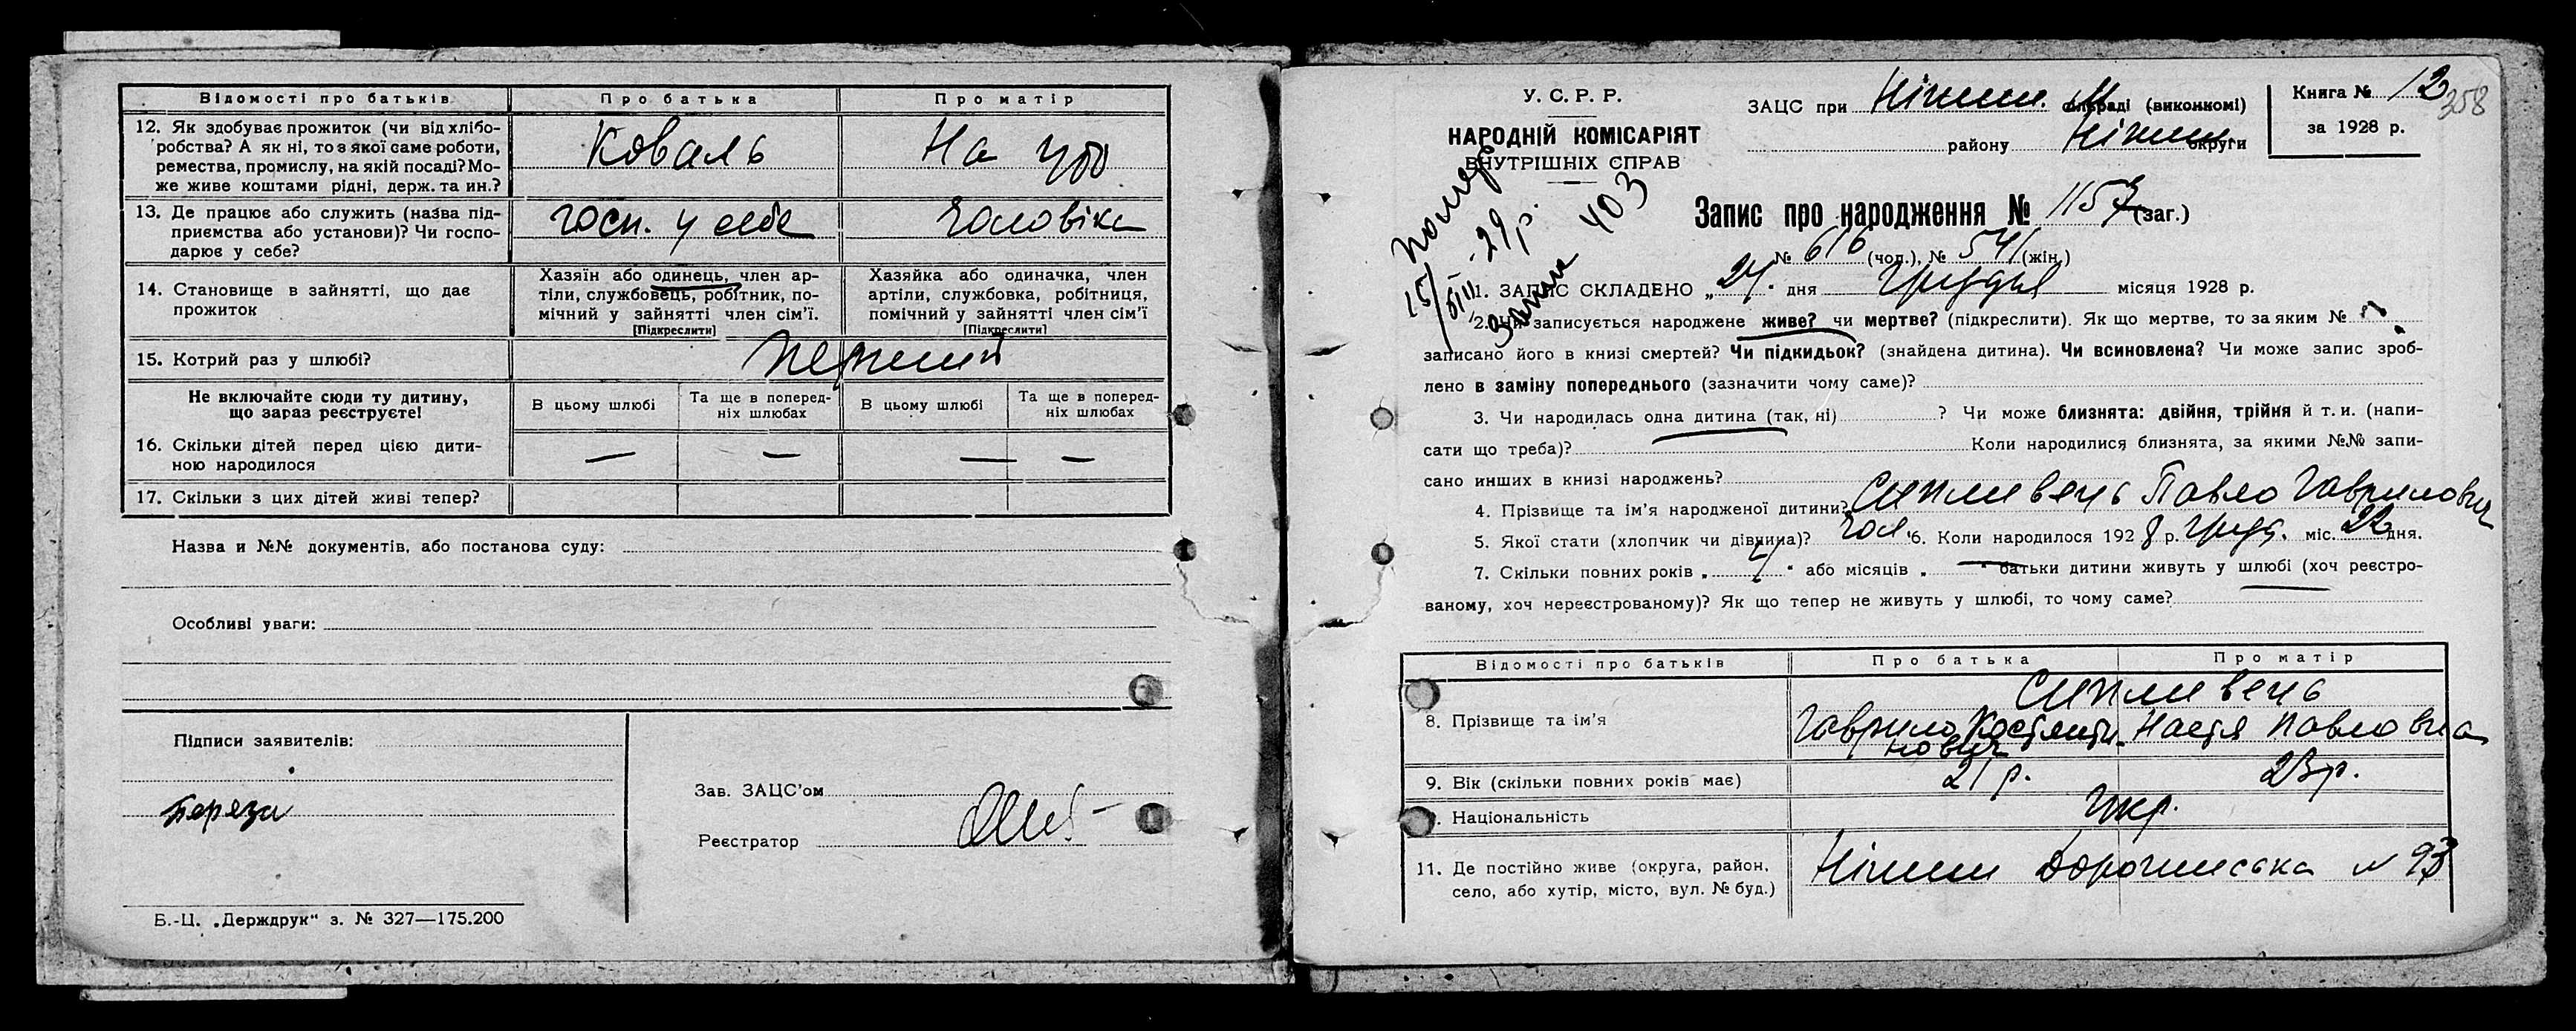 Відомості про батьків
Про батька
Про матір
12. Як здобуває прожиток (чи від хлібо-
робства? А як ні, то з якої саме роботи,
ремества, промислу, на якій посаді? Мо-
же живе коштами рідні, держ. та ин.?
Коваль
На
13. Де працює або служить (назва під-
приємства або установи)? Чи госпо-
дарює у себе?
госп. у себе
Чоловіка
14. Становище в зайнятті, що дає
прожиток
Хазяїн або одинець, член ар-
тіли, службовець, робітник, по-
мічний у зайнятті член сім'ї.
[Підкреслити]
Хазяйка або одиначка, член
артіли, службовка, робітниця,
помічний у зайнятті член сім'ї
[Підкреслити]
15. Котрий раз у шлюбі?
перший
Не включайте сюди ту дитину,
що зараз реєструєте!
В цьому шлюбі
Та ще в поперед-
ніх шлюбах
В цьому шлюбі
Та ще в поперед-
ніх шлюбах
16. Скільки дітей перед цією дити-
ною народилося
— — — —
17. Скільки з цих дітей живі тепер?
Назва и №№ документів, або постанова суду:
Особливі уваги:
Підписи заявителів:
Зав. ЗАЦС'ом
Реєстратор
Б.-Ц. „Держдрук" з. № 327—175.200
У. С. Р. Р.
НАРОДНІЙ КОМІСАРІЯТ
ВНУТРІШНІХ СПРАВ
помер
15/III-29 р.
запис 403
ЗАЦС при Ніжин. М сільраді (виконкомі)
району Ніжин округи
Книга № 12
за 1928 р.
358
Запис про народження № 1157 (заг.)
№ 616 (чол.), № 541 (жін.)
1. ЗАПИС СКЛАДЕНО „24" дня грудня місяця 1928 р.
2. Чи записується народжене живе? чи мертве? (підкреслити). Як що мертве, то за яким №
записано його в книзі смертей? Чи підкидьок? (знайдена дитина). Чи всиновлена? Чи може запис зроб-
лено в заміну попереднього (зазначити чому саме)?
3. Чи народилась одна дитина (так, ні) ? Чи може близнята: двійня, трійня й т. и. (напи-
сати що треба)? Коли народилися близнята, за якими №№ запи-
сано инших в книзі народжень?
4. Прізвище та ім'я народженої дитини? Сипливець Павло Гаврилович
5. Якої стати (хлопчик чи дівчина)? чол. 6. Коли народилося 1928 р. груд. міс. 22 дня.
7. Скільки повних років „ " або місяців „—" батьки дитини живуть у шлюбі (хоч реєстро-
ваному, хоч нереєстрованому)? Як що тепер не живуть у шлюбі, то чому саме?
Відомості про батьків
Про батька
Про матір
8. Прізвище та ім'я
Сипливець
Гаврило Костянти-
нович
Настя Павловна
9. Вік (скільки повних років має)
21 р.
23 р.
Національність
Укр.
11. Де постійно живе (округа, район,
село, або хутір, місто, вул. № буд.)
Ніжин Дорогинська № 93